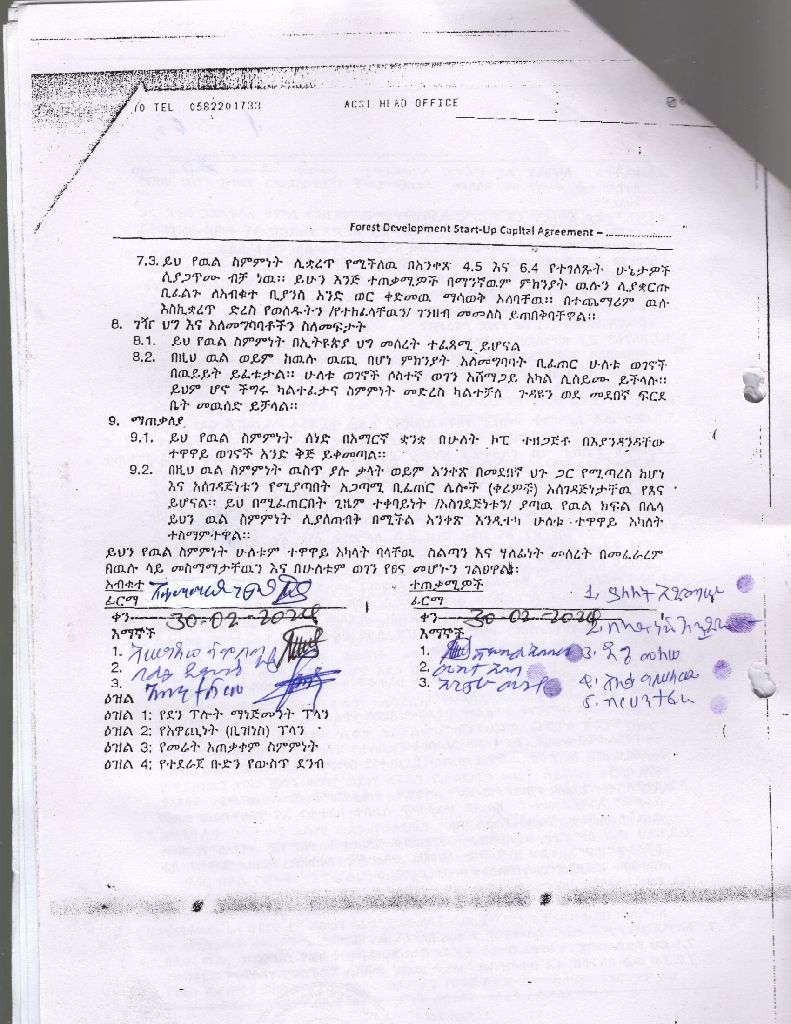 TEL 0582201733 ACSI HEAD OFFICE
Forest Development Start-Up Capital Agreement – ......................
7.3. ይህ የዉል ስምምነት ሊቋረጥ የሚችለዉ በአንቀጽ 4.5 እና 6.4 የተገለጹት ሁኔታዎች
ሲያጋጥሙ ብቻ ነዉ፡፡ ይሁን እንጅ ተጠቃሚዎች በማንኛዉም ምክንያት ዉሉን ሊያቋርጡ
ቢፈልጉ ለአብቁተ ቢያንስ አንድ ወር ቀድመዉ ማሳወቅ አለባቸዉ፡፡ በተጨማሪም ዉሉ
እስኪቋረጥ ድረስ የወሰዱትን /የተከፈላቸዉን/ ገንዘብ መመለስ ይጠበቅባቸዋል፡፡
8. ገዥ ህግ እና አለመግባባቶችን ስለመፍታት
8.1. ይህ የዉል ስምምነት በኢትዩጵያ ህግ መሰረት ተፈጻሚ ይሆናል
8.2. በዚህ ዉል ወይም ከዉሉ ዉጪ በሆነ ምክንያት አለመግባባት ቢፈጠር ሁለቱ ወገኖች
በዉይይት ይፈቱታል፡፡ ሁለቱ ወገኖች ሶስተኛ ወገን አሸማጋይ አካል ሊሰይሙ ይችላሉ፡፡
ይህም ሆኖ ችግሩ ካልተፈታና ስምምነት መድረስ ካልተቻለ ጉዳዩን ወደ መደበኛ ፍርድ
ቤት መዉሰድ ይቻላል፡፡
9. ማጠቃለያ
9.1. ይህ የዉል ስምምነት ሰነድ በአማርኛ ቋንቋ በሁለት ኮፒ ተዘጋጅቶ በእያንዳንዳቸው
ተዋዋይ ወገኖች አንድ ቅጅ ይቀመጣል፡፡
9.2. በዚህ ዉል ስምምነት ዉስጥ ያሉ ቃላት ወይም አንቀጽ በመደበኛ ህጉ ጋር የሚጣረስ ከሆነ
እና አስገዳጅነቱን የሚያጣበት አጋጣሚ ቢፈጠር ሌሎች (ቀሪዎቹ) አስገዳጅነታቸዉ የጸና
ይሆናል፡፡ ይህ በሚፈጠርበት ጊዜም ተቀባይነት /አስገደጅነቱን/ ያጣዉ የዉል ክፍል በሌላ
ይህን ዉል ስምምነት ሊያለጠብቅ በሚችል አንቀጽ እንዲተካ ሁለቱ ተዋዋይ አካለት
ተስማምተዋል፡፡
ይህን የዉል ስምምነት ሁለቱም ተዋዋይ አካላት ባላቸዉ ስልጣን እና ሃላፊነት መሰረት በመፈራረም
በዉሉ ላይ መስማማታቸዉን እና በሁለቱም ወገን የፀና መሆኑን ገልፀዋል፡፡
አብቁተ ተጠቃሚዎች
ፊርማ ፊርማ
ቀን 30-02-2024 ቀን 30-02-2024
እማኞች እማኞች
1. 1.
2. 2.
3. 3.
ዕዝል
ዕዝል 1: የደን ፕሎት ማነጅመንት ፕላን
ዕዝል 2: የአዋጪነት (ቢዝነስ) ፕላን
ዕዝል 3: የመሬት አጠቃቀም ስምምነት
ዕዝል 4: የተደራጀ ቡድን የውስጥ ደንብ